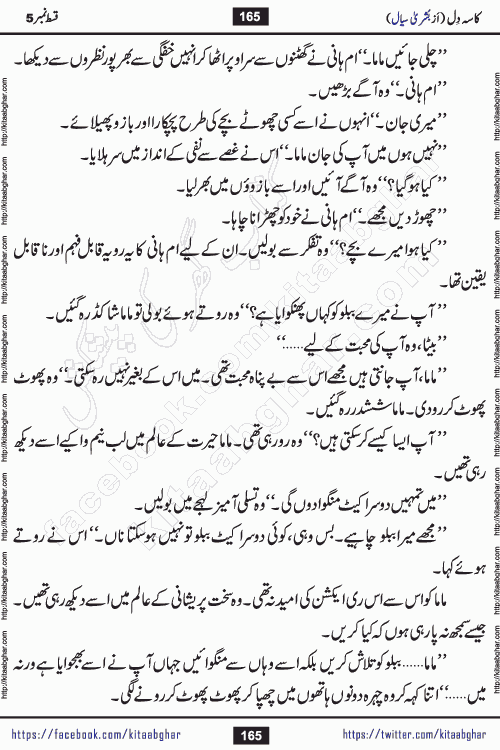 کاسہ دِل (اَز بُشریٰ سیال) 165 قسط نمبر 5
’’چلی جائیں ماما۔‘‘ ام ہانی نے گھٹنوں سے سر اوپر اٹھا کر انہیں خفگی سے بھرپور نظروں سے دیکھا۔
’’ام ہانی۔‘‘ وہ آگے بڑھیں۔
’’میری جان۔‘‘ انہوں نے اسے کسی چھوٹے بچے کی طرح پچکارا اور بازو پھیلائے۔
’’نہیں ہوں میں آپ کی جان ماما۔‘‘ اس نے غصے سے نفی کے انداز میں سر ہلایا۔
’’کیا ہو گیا؟‘‘ وہ آگے آئیں اور اسے بازوؤں میں بھر لیا۔
’’چھوڑ دیں مجھے۔‘‘ ام ہانی نے خود کو چھڑانا چاہا۔
’’کیا ہوا میرے بچے؟‘‘ وہ تفکر سے بولیں۔ ان کے لیے ام ہانی کا یہ رویہ قابل فہم اور ناقابل
یقین تھا۔
’’آپ نے میرے ببلو کو کہاں پھنکوایا ہے؟‘‘ وہ روتے ہوئے بولی تو ماما شاکڈ رہ گئیں۔
’’بیٹا، وہ آپ کی محبت کے لیے......‘‘
’’ماما، آپ جانتی ہیں مجھے اس سے بے پناہ محبت تھی۔ میں اس کے بغیر نہیں رہ سکتی۔‘‘ وہ پھوٹ
پھوٹ کر رو دی۔ ماما ششدر رہ گئیں۔
’’آپ ایسا کیسے کر سکتی ہیں؟‘‘ وہ رو رہی تھی۔ ماما حیرت کے عالم میں لب نیم وا کیے اسے دیکھ
رہی تھیں۔
’’میں تمہیں دوسرا کیٹ منگوا دوں گی۔‘‘ وہ تسلی آمیز لہجے میں بولیں۔
’’مجھے میرا ببلو چاہیے۔ بس وہی، کوئی دوسرا کیٹ ببلو تو نہیں ہو سکتا ناں۔‘‘ اس نے روتے
ہوئے کہا۔
ماما کو اس سے اس ری ایکشن کی امید نہ تھی۔ وہ سخت پریشانی کے عالم میں اسے دیکھ رہی تھیں۔
جیسے سمجھ نہ پا رہی ہوں کہ کیا کریں۔
’’ماما...... ببلو کو تلاش کریں بلکہ اسے وہاں سے منگوائیں جہاں آپ نے اسے بھجوایا ہے ورنہ
میں......‘‘ اتنا کہہ کر وہ چہرہ دونوں ہاتھوں میں چھپا کر پھوٹ پھوٹ کر رونے لگی۔
https://facebook.com/kitaabghar 165 https://twitter.com/kitaabghar
http://kitaabghar.com
کتاب گھر کی پیشکش
facebook.com/kitaabghar
kitaabghar.com